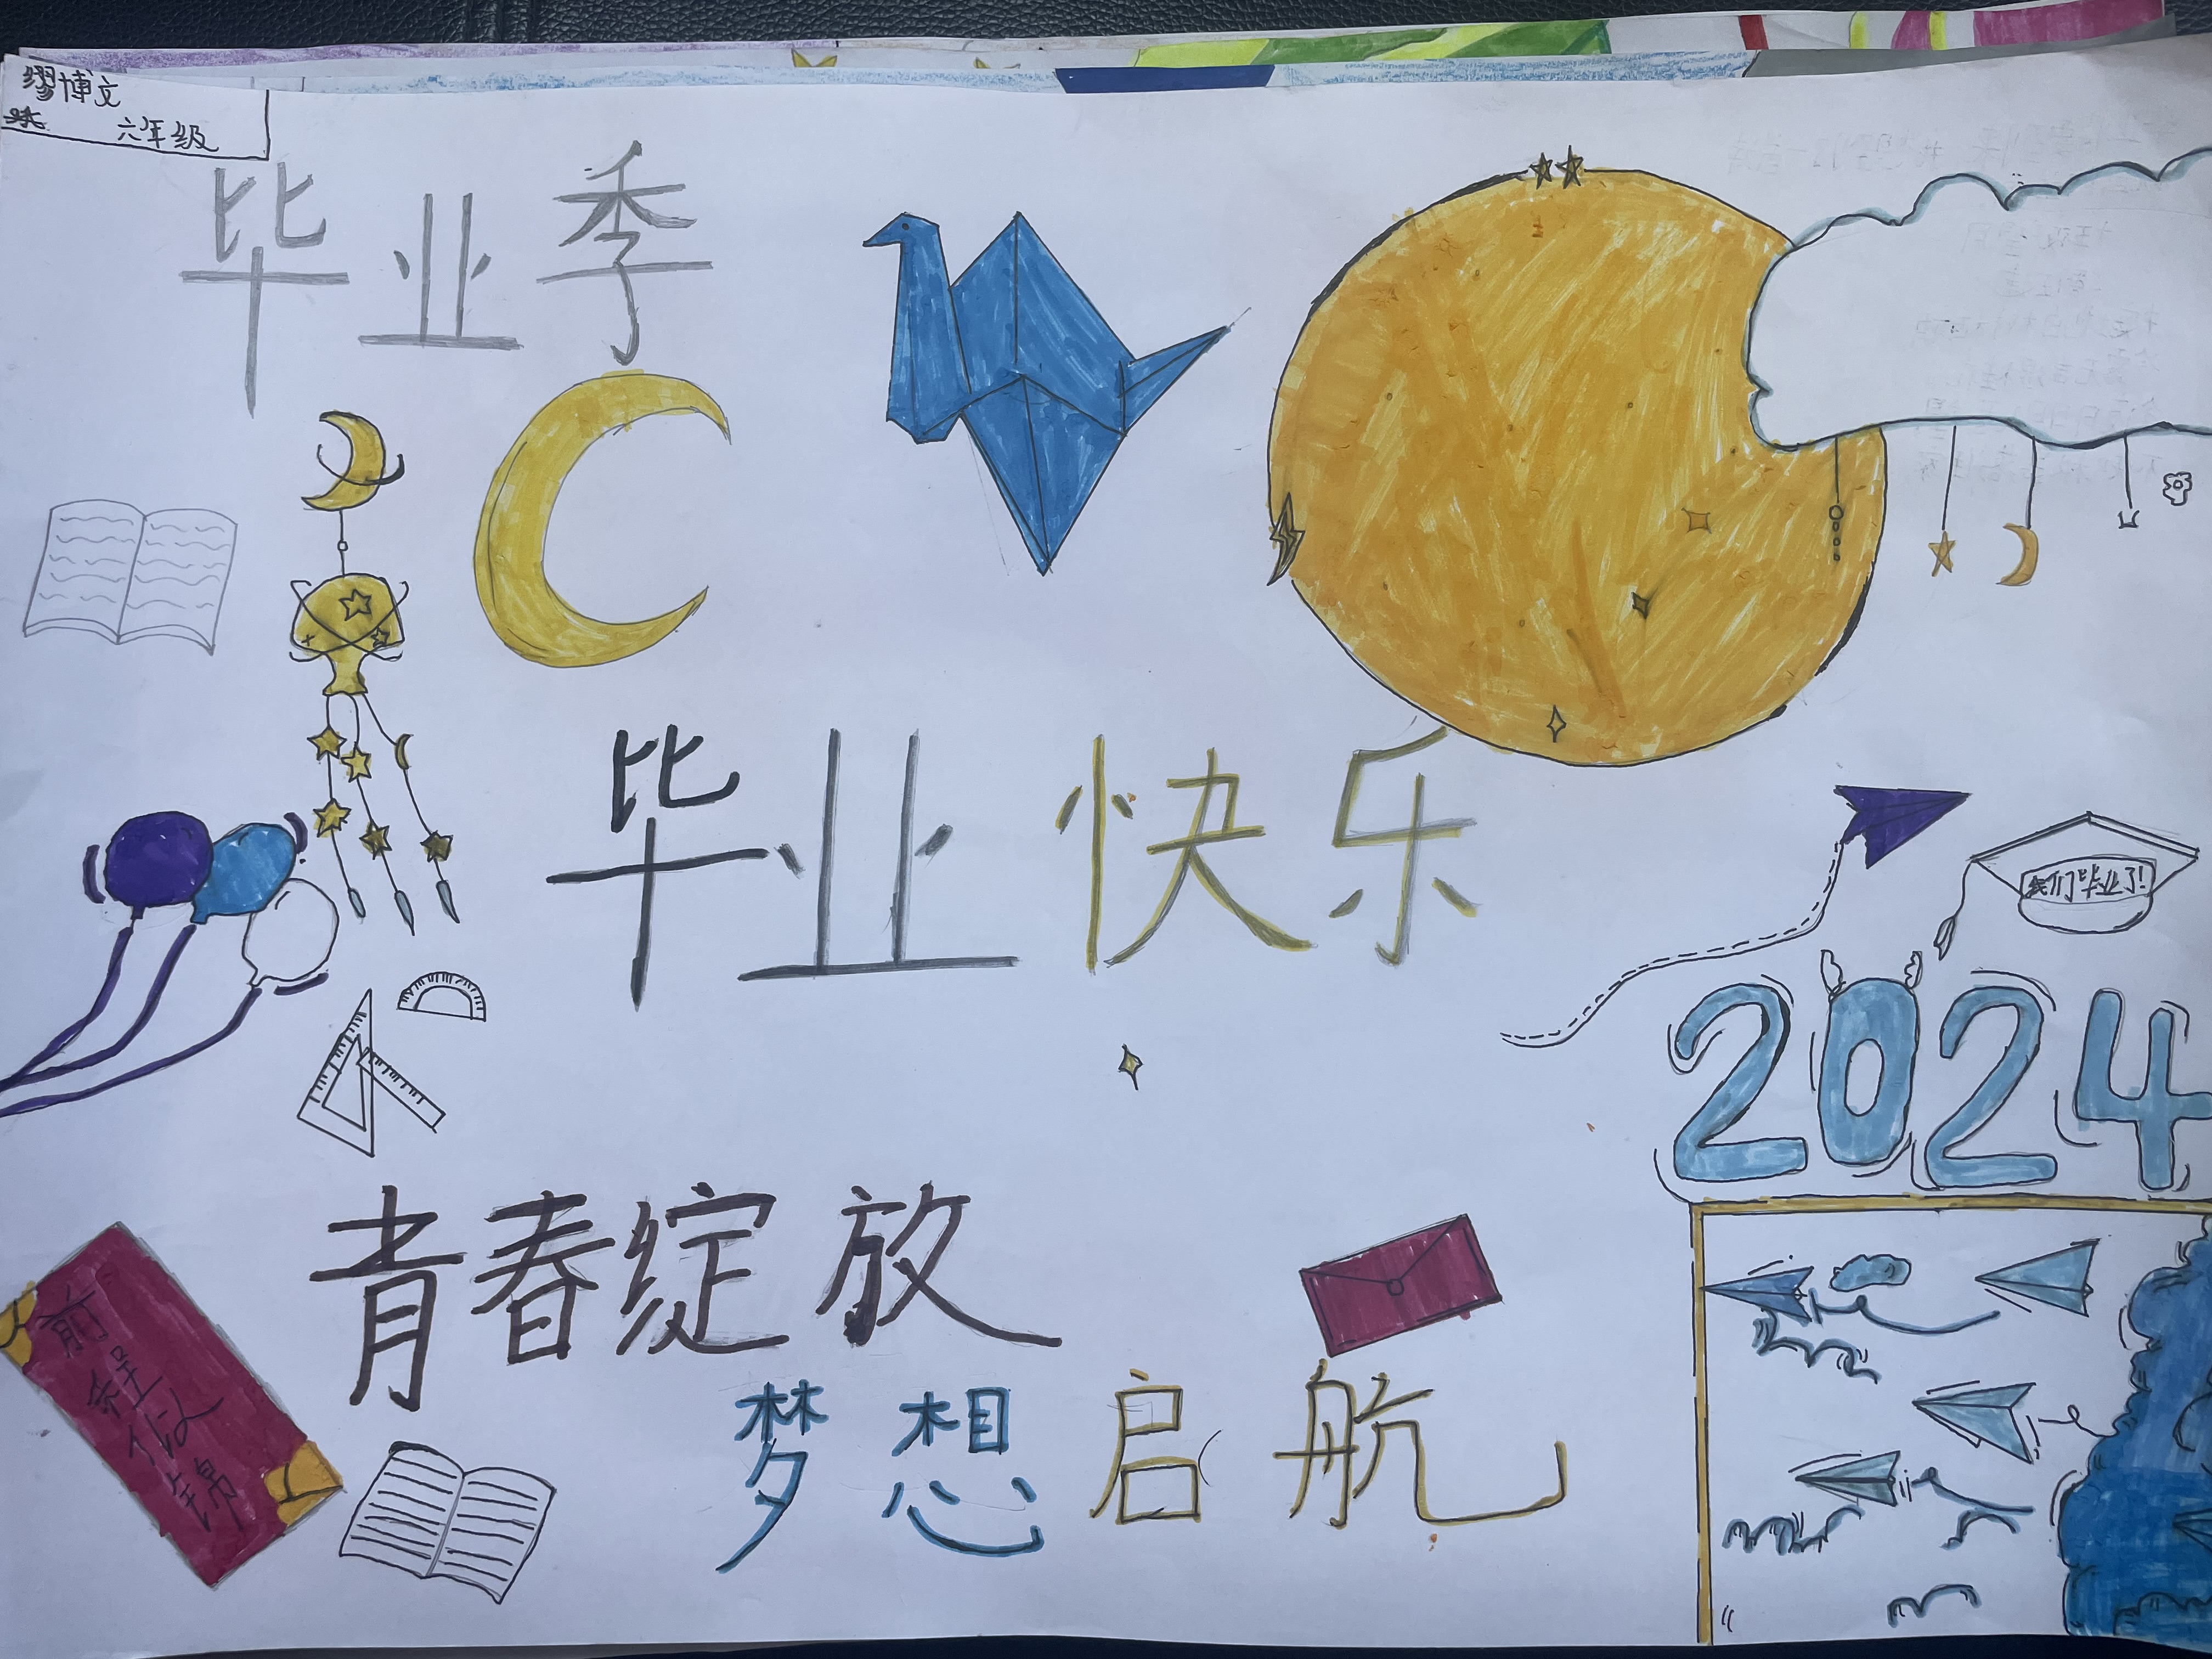 缪博文
六年级
毕业季
毕业快乐
我们毕业了!
2024
青春绽放
前程似锦
梦想启航